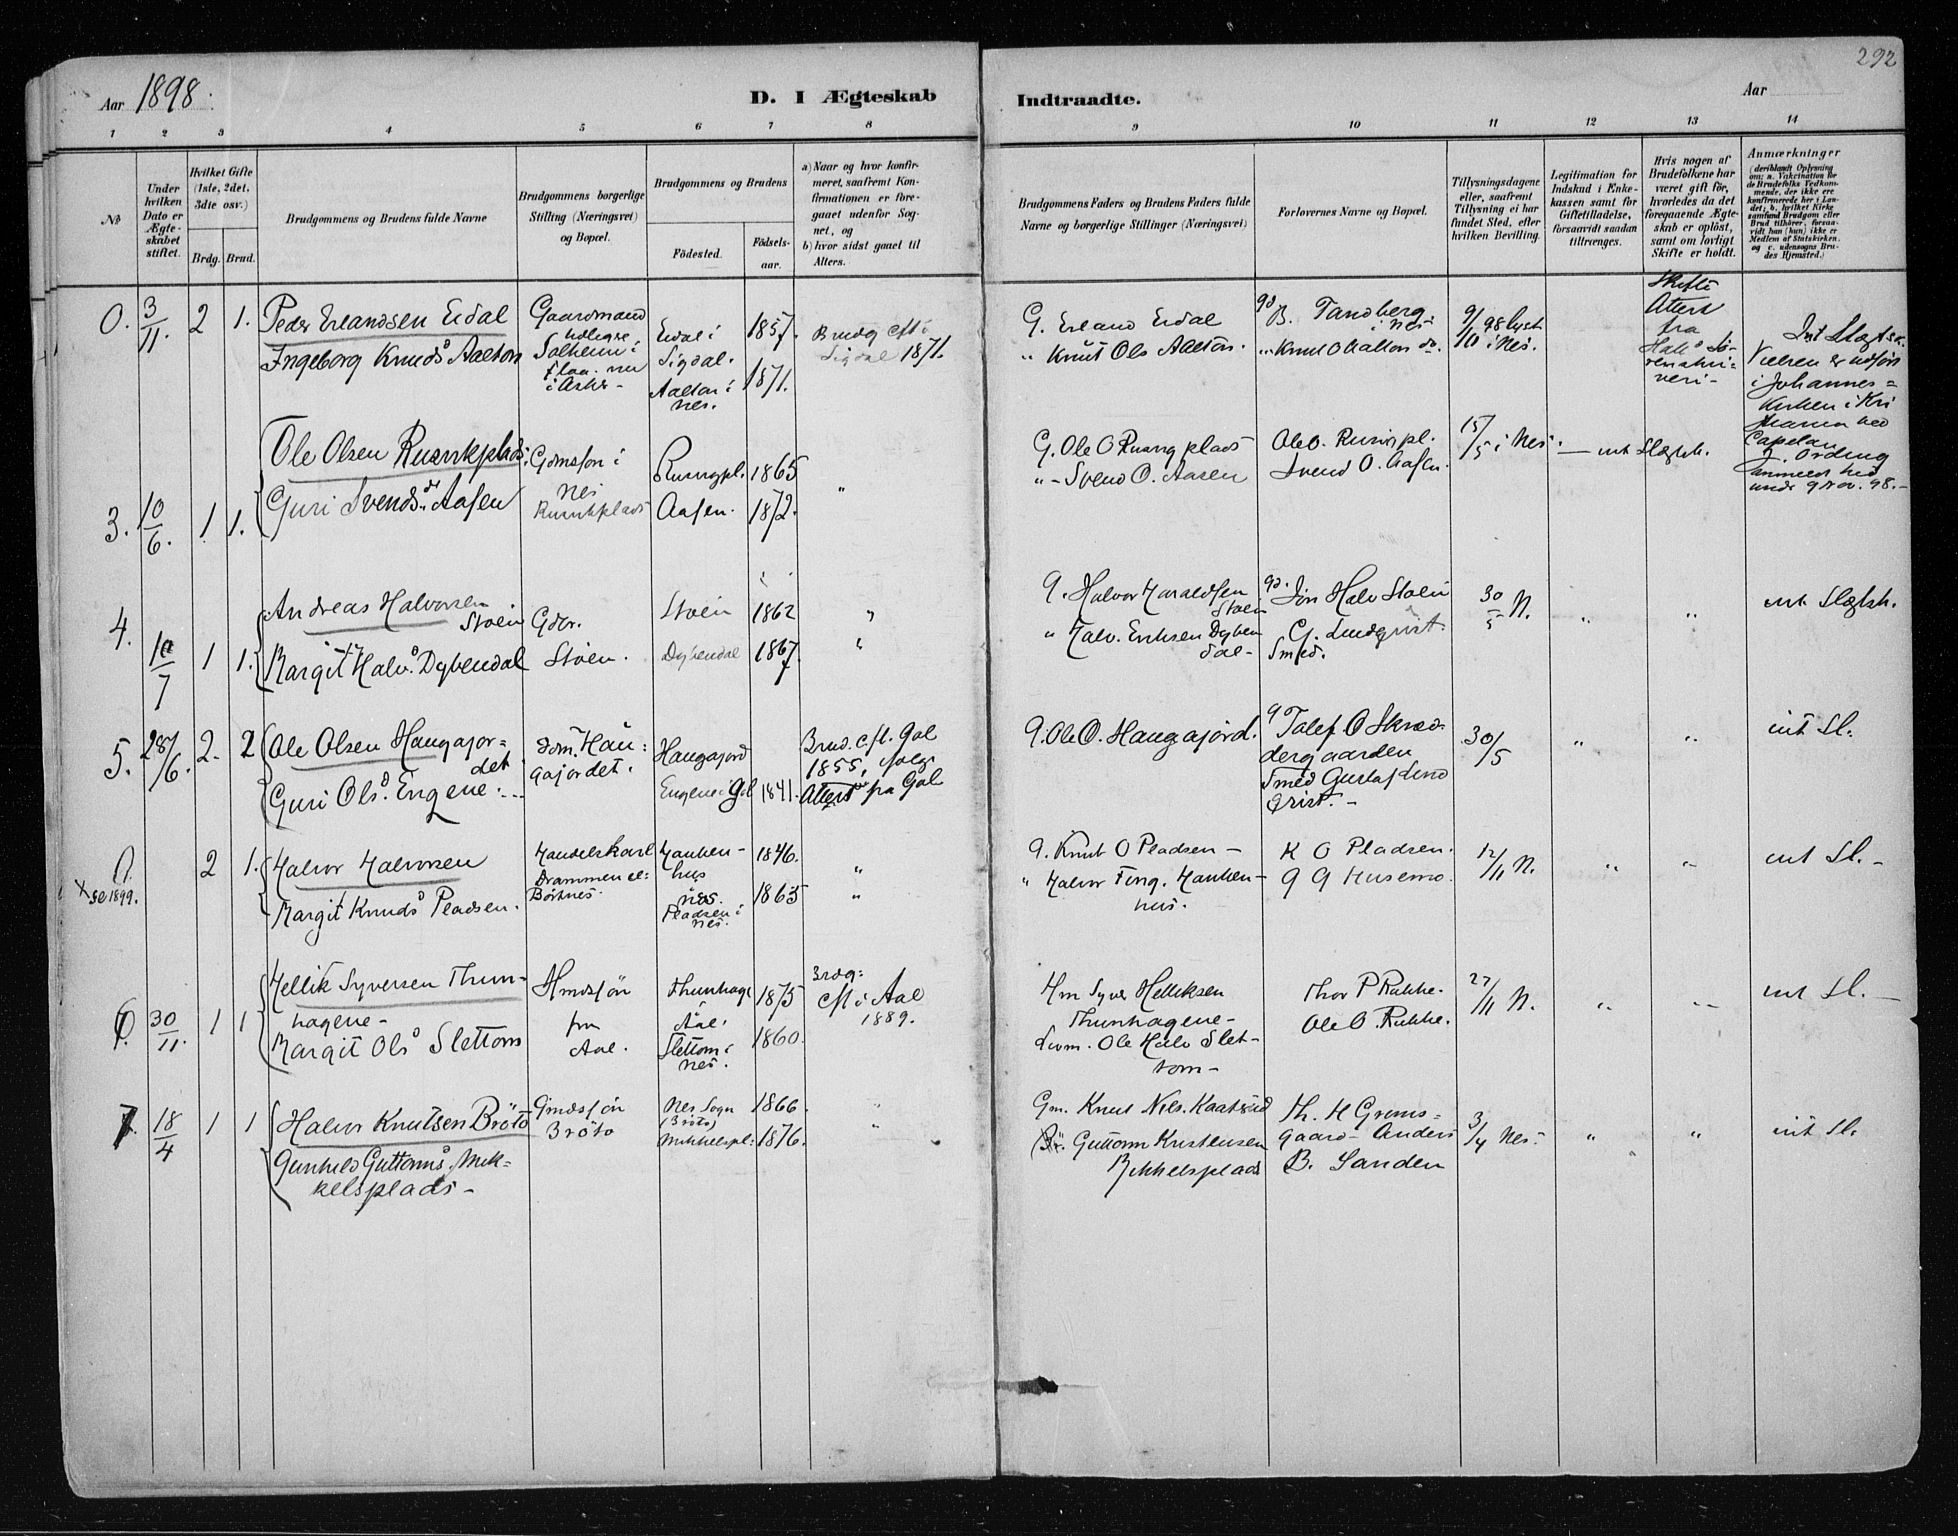 292
Aar 1898.
D. I Ægteskab Indtraadte.
Aar
1 2 3 4 5 6 7 8 9 10 11 12 13 14
No
Under hvilken Dato er Ægteskabet stiftet.
Hvilket Gifte (1ste, 2det, 3die osv.)
Brdg. Brud.
Brudgommens og Brudens fulde Navne
Brudgommens borgerlige Stilling (Næringsvei) og Bopæl.
Brudgommens og Brudens
Födested.
Födselsaar.
a) Naar og hvor konfirmeret, saafremt Konfirmationen er foregaaet udenfor Sognet, og
b) hvor sidst gaaet til Alters.
Brudgommens Faders og Brudens Faders fulde Navne og borgerlige Stillinger (Næringsvei)
Forlovernes Navne og Bopæl.
Tillysningsdagene eller, saafremt Tillysning ei har fundet Sted, efter hvilken Bevilling.
Legitimation for Indskud i Enkekassen samt for Giftetilladelse, forsaavidt saadan tiltrænges.
Hvis nogen af Brudefolkene har været gift för, hvorledes da det foregaaende Ægteskab er oplöst, samt om lovligt Skifte er holdt.
Anmærkninger
(deriblandt Oplysning om: a. Vakcination for de Brudefolks Vedkommende, der ikke ere konfirmerede her i Landet; b. hvilket Kirkesamfund Brudgom eller Brud tilhörer, forsaavidt han (hun) ikke er Medlem af Statskirken, og c. udensogns Brudes Hjemsted.)
0. 3/11. 2 1. Peder Erlandsen Eidal
Ingeborg Knudsd Aalton
Gaardmand Solheim i Flaa. nu
Eidal i Sigdal. 1857.
Aalton i Nes. 1871.
Brudg cft i Sigdal 1871.
G. Erland Eidal
" Knut Ols Aalton.
B. Tandberg i Nes
" Knut O Aalton do.
9/10 98 i Nes.
Skifte Attest fra
Vielsen er udført i Johannes=kirken i Kri
3. 10/6. 1 1. Ole Olsen Rusnkplads.
Guri Svendsd Aasen
Gdmsøn i Nes
1865
Aasen. 1872.
"
G. Ole O
" - Svend O. Aasen
Ole O.
Svend O. Aasen.
15/5 i Nes.
int Slægtsk.
4. 10/7 1 1. Andreas Halvorsen Støen
Margit Halvsd Dybendal
Gdbr. Støen.
Støen 1862 "
Dybendal 1867. "
G. Halvor Haraldsen Støen
" Halv. Eriksen Dybendal-
Jøn Halv Støen
G. Lindqvist. Smed.
30/5 N. " "
int Slægtsk.
5. 28/6. 2. 2 Ole Olsen Haugajordet
Guri Olsd. Engene.
Haugajordet.
Haugajord
Engene i Gol 1841.
Brud. cft. Gol 1855,
Attest fra Gol
G. Ole O. Haugajord.
Talef O Skræddergaarden
Smed Gustaf Lindqvist.-
30/5 " "
int Sl.
0. x se 1899. 2 1. Halvor Halvorsen
Margit Knudsd Pladsen.
Handelskarl Drammen
Haukenhus Nes. 1846. "
Pladsen i Nes. 1865 "
G. Knut O Pladsen-
" Halvor Haukenhus.
K O Pladsen.
G G Husemo.
12/11 N. " "
int Sl.-
30/11. 1 1 Hellik Syversen Thunhagene-
Margit Olsd Slettom
Gmdsøn fra Aal.
Thunhage Aal. 1875
Slettom i Nes. 1860.
Brdg: cft i Aal 1889.
Syver Helliksen Thunhagene-
Ole Halv Slettom-
Thor P Rukke.
Ole O. Rukke.
27/11 N. " "
int Sl.-
7. 18/4 1 1 Halvor Knutsen Bröto
Gunhild Guttormsd. Mikkelsplads-
Gmdssøn Bröto
Nes Sogn (Bröto) 1866.
Mikkelspl. 1876.
Gm. Knut Nils.
Guttorm Kristensen Mikkelsplads
Th. H Gromsgaard- Anders B. Sanden
3/4 Nes. " "
int Sl.